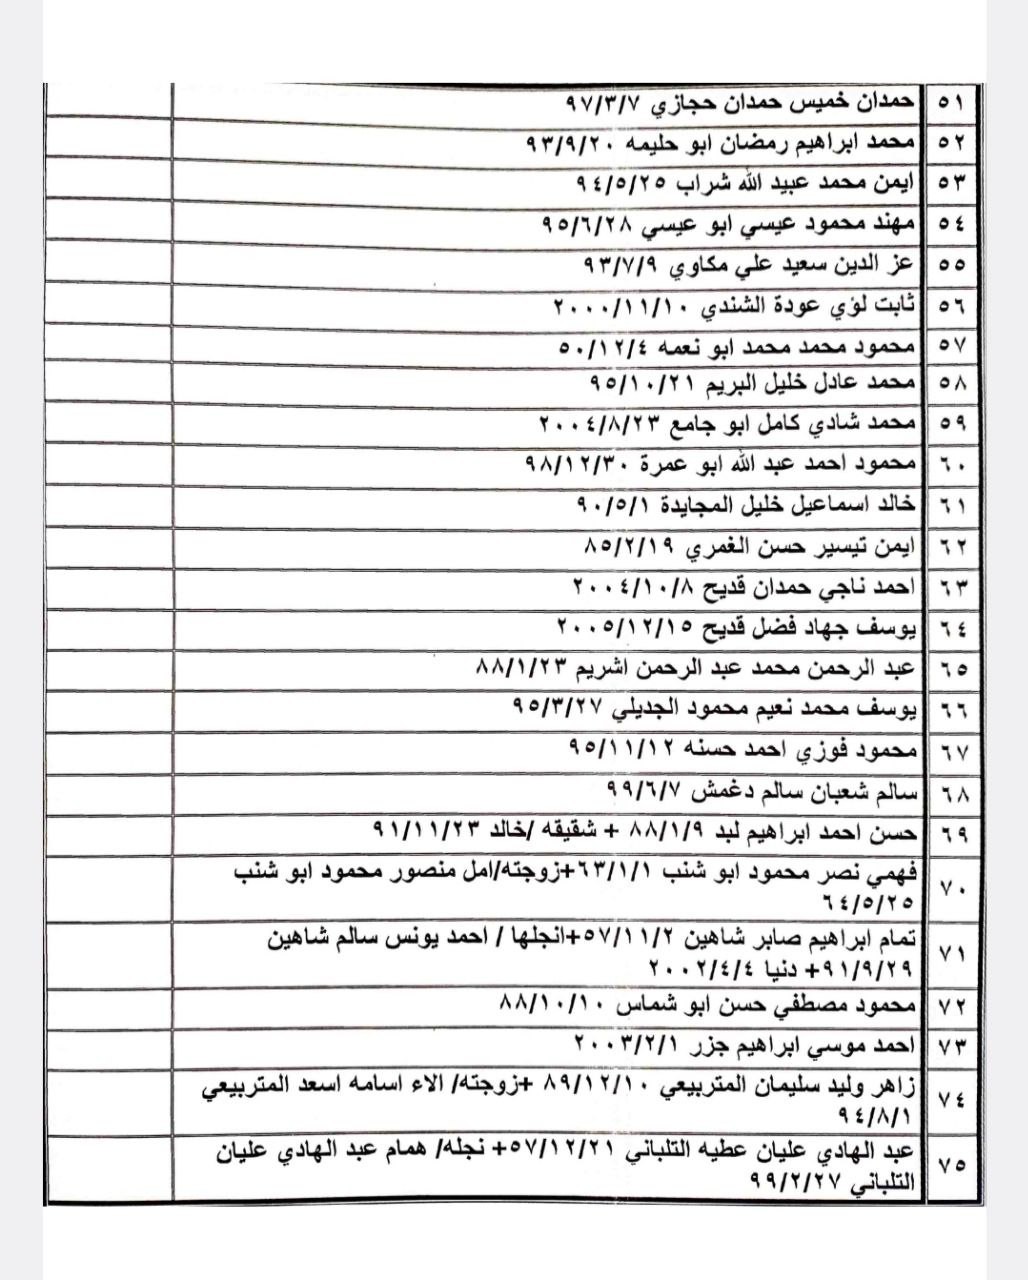 ٥١ حمدان خميس حمدان حجازي ٩٧/٣/٧
٥٢ محمد ابراهيم رمضان ابو حليمه ٩٣/٩/٢٠
٥٣ ايمن محمد عبيد الله شراب ٩٤/٥/٢٥
٥٤ مهند محمود عيسي ابو عيسي ٩٥/٦/٢٨
٥٥ عز الدين سعيد علي مكاوي ٩٣/٧/٩
٥٦ ثابت لؤي عودة الشندي ٢٠٠٠/١١/١٠
٥٧ محمود محمد محمد ابو نعمه ٥٠/١٢/٤
٥٨ محمد عادل خليل البريم ٩٥/١٠/٢١
٥٩ محمد شادي كامل ابو جامع ٢٠٠٤/٨/٢٣
٦٠ محمود احمد عبد الله ابو عمرة ٩٨/١٢/٣٠
٦١ خالد اسماعيل خليل المجايدة ٩٠/٥/١
٦٢ ايمن تيسير حسن الغمري ٨٥/٢/١٩
٦٣ احمد ناجي حمدان قديح ٢٠٠٤/١٠/٨
٦٤ يوسف جهاد فضل قديح ٢٠٠٥/١٢/١٥
٦٥ عبد الرحمن محمد عبد الرحمن اشريم ٨٨/١/٢٣
٦٦ يوسف محمد نعيم محمود الجديلي ٩٥/٣/٢٧
٦٧ محمود فوزي احمد حسنه ٩٥/١١/١٢
٦٨ سالم شعبان سالم دغمش ٩٩/٦/٧
٦٩ حسن احمد ابراهيم لبد ٨٨/١/٩ + شقيقه /خالد ٩١/١١/٢٣
٧٠ فهمي نصر محمود ابو شنب ٦٣/١/١+زوجته/امل منصور محمود ابو شنب
٦٤/٥/٢٥
٧١ تمام ابراهيم صابر شاهين ٥٧/١١/٢+انجلها / احمد يونس سالم شاهين
٩١/٩/٢٩+ دنيا ٢٠٠٢/٤/٤
٧٢ محمود مصطفي حسن ابو شماس ٨٨/١٠/١٠
٧٣ احمد موسي ابراهيم جزر ٢٠٠٣/٢/١
٧٤ زاهر وليد سليمان المتربيعي ٨٩/١٢/١٠ +زوجته/ الاء اسامه اسعد المتربيعي
٩٤/٨/١
٧٥ عبد الهادي عليان عطيه التلباني ٥٧/١٢/٢١+ نجله/ همام عبد الهادي عليان
التلباني ٩٩/٢/٢٧